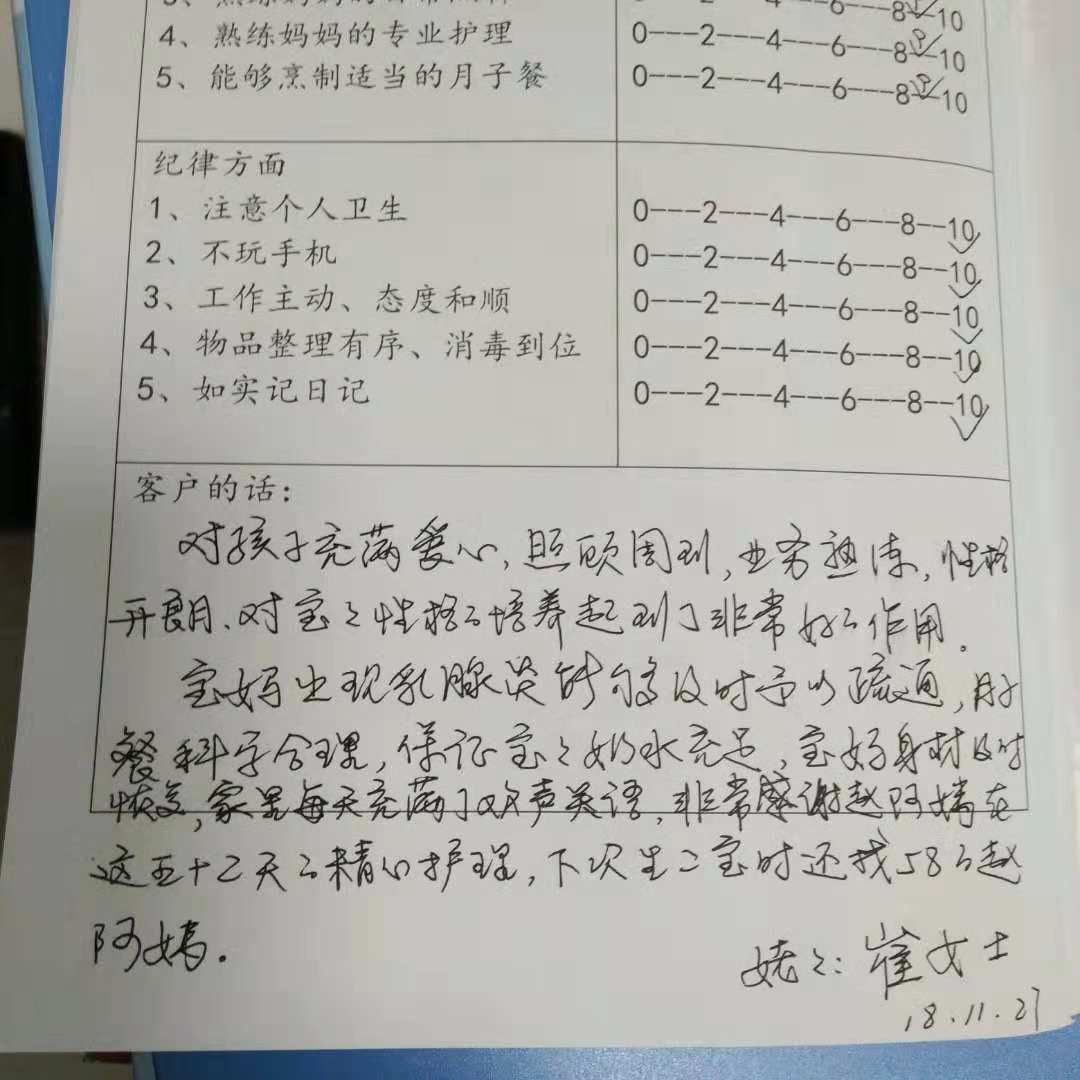 3、熟练妈妈的日常
0---2---4---6---8---10
4、熟练妈妈的专业护理
0---2---4---6---8 9 10
5、能够烹制适当的月子餐
0---2---4---6---8 9 10
纪律方面
1、注意个人卫生
0---2---4---6---8--10
2、不玩手机
0---2---4---6---8--10
3、工作主动、态度和顺
0---2---4---6---8--10
4、物品整理有序、消毒到位
0---2---4---6---8--10
5、如实记日记
0---2---4---6---8--10
客户的话：
对孩子充满爱心，照顾周到，业务熟练，性格
开朗、对宝宝性格的培养起到了非常好的作用。
宝妈出现乳腺炎能够及时予以疏通，月子
餐科学合理，保证宝宝奶水充足，宝妈身材及时
恢复，家里每天充满了欢声笑语，非常感谢赵阿姨在
这五十二天的精心护理，下次生二宝时还找58的赵
阿姨.
姥姥：崔女士
18.11.27